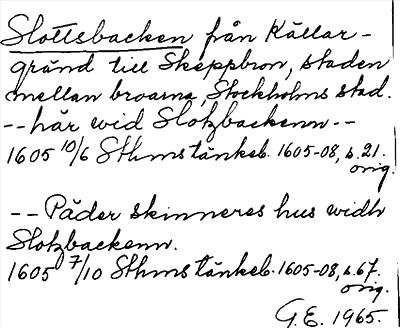 Slottsbacken från Källar-
gränd till Skeppbron, staden
mellan broarna, Stockholms stad.
-- här wid Slotzbackenn --
1605 10/6 Sthms tänkeb. 1605-08, s. 21.
orig.
-- Päder skinneres hus widh
Slotzbackenn.
1605 7/10 Sthms tänkeb. 1605-08, s. 67.
orig.
G.E. 1965.